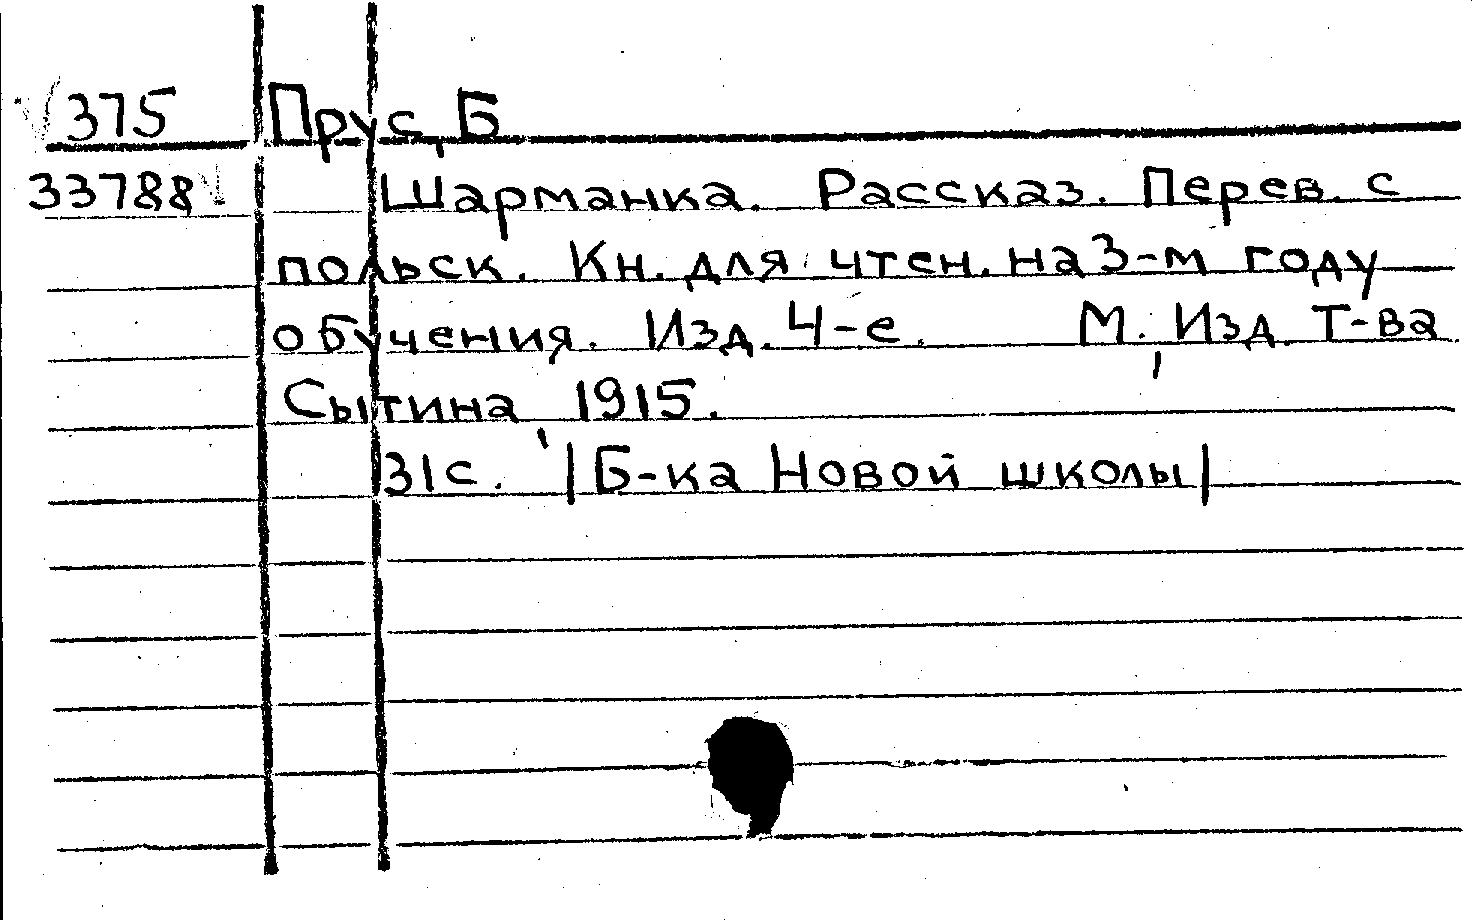 375 Прус, Б
33788 Шарманка. Рассказ. Перев. с
польск. Кн. для чтен. на 3-м году
обучения. Изд. 4-е. М., Изд. Т-ва
Сытина, 1915.
31с. |Б-ка Новой школы|